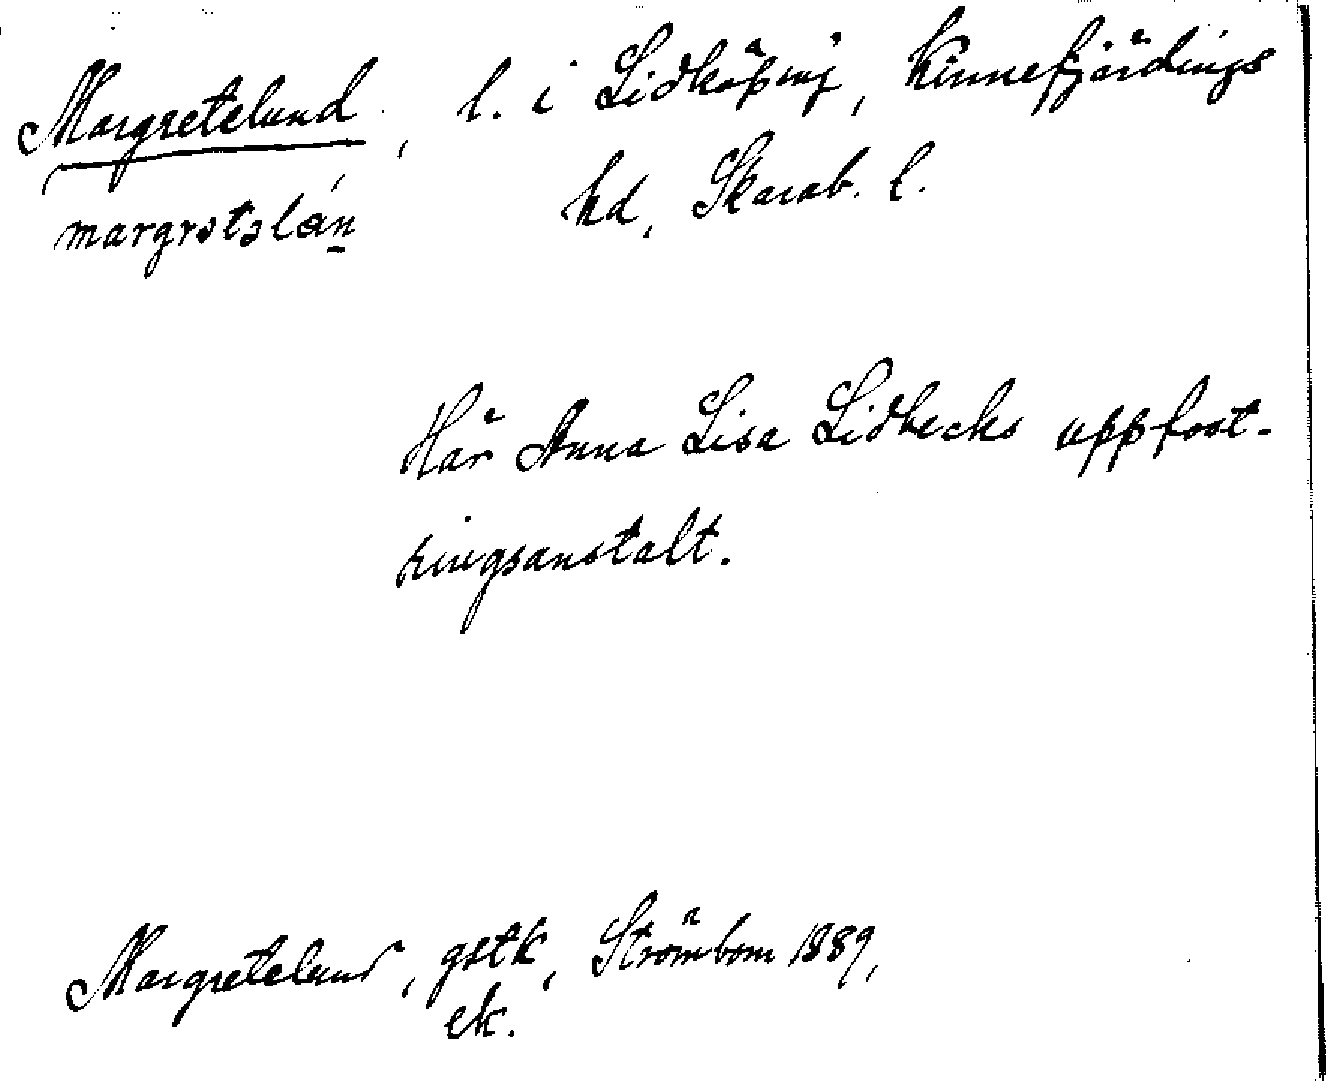 Margretelund, l. i Lidköping, Kinnefjärdings
margrətəlán hd, Skarab. l.
Här Anna Lisa Lidbecks uppfost-
ringsanstalt.
Margretelund, gstk, Strömbom 1889,
ek.